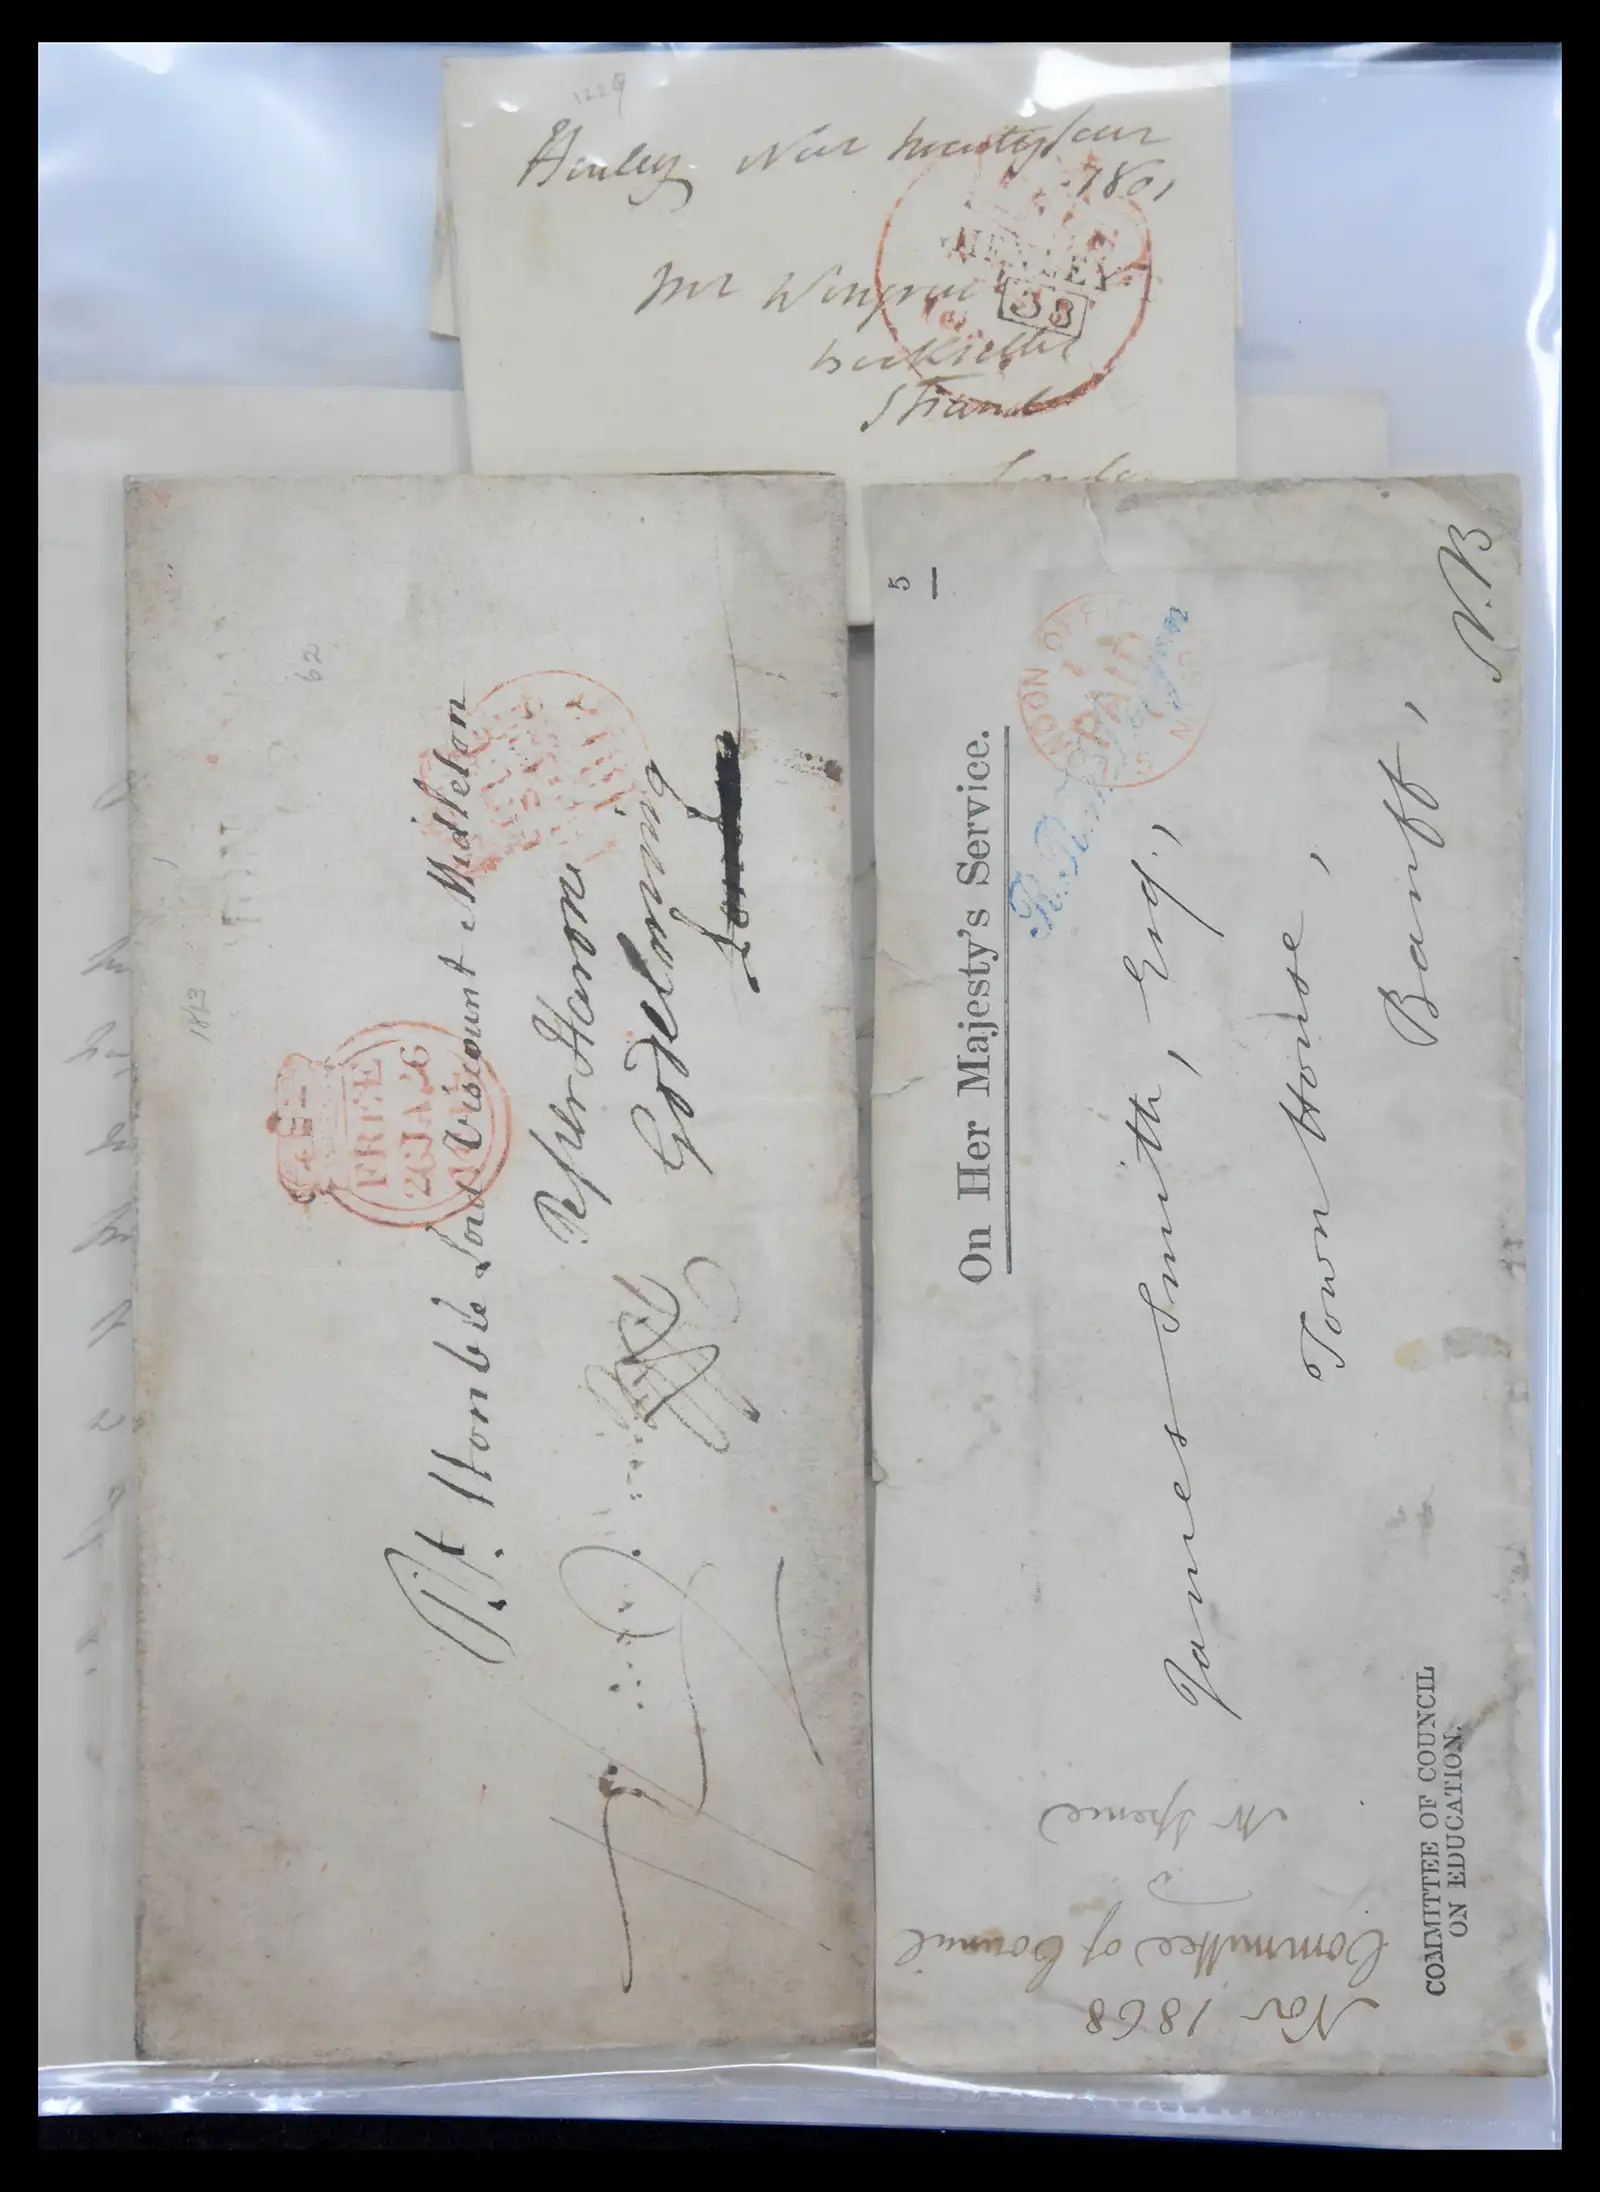 1229
Henley Nov twentyfour
1801
HENLEY
33
Mr Wingrave
Bookseller
Strand
London
1813
62
FREE
26JA26
Rt. Honble Lord Viscount Midleton
Peper Harow
Godelming
London
5
On Her Majesty's Service.
LONDON OFFICIAL
PAID
James Smith, Esq.,
Town House,
Banff,
N.B
COMMITTEE OF COUNCIL
ON EDUCATION.
Nov 1868
Committee of Council
Mr Spence